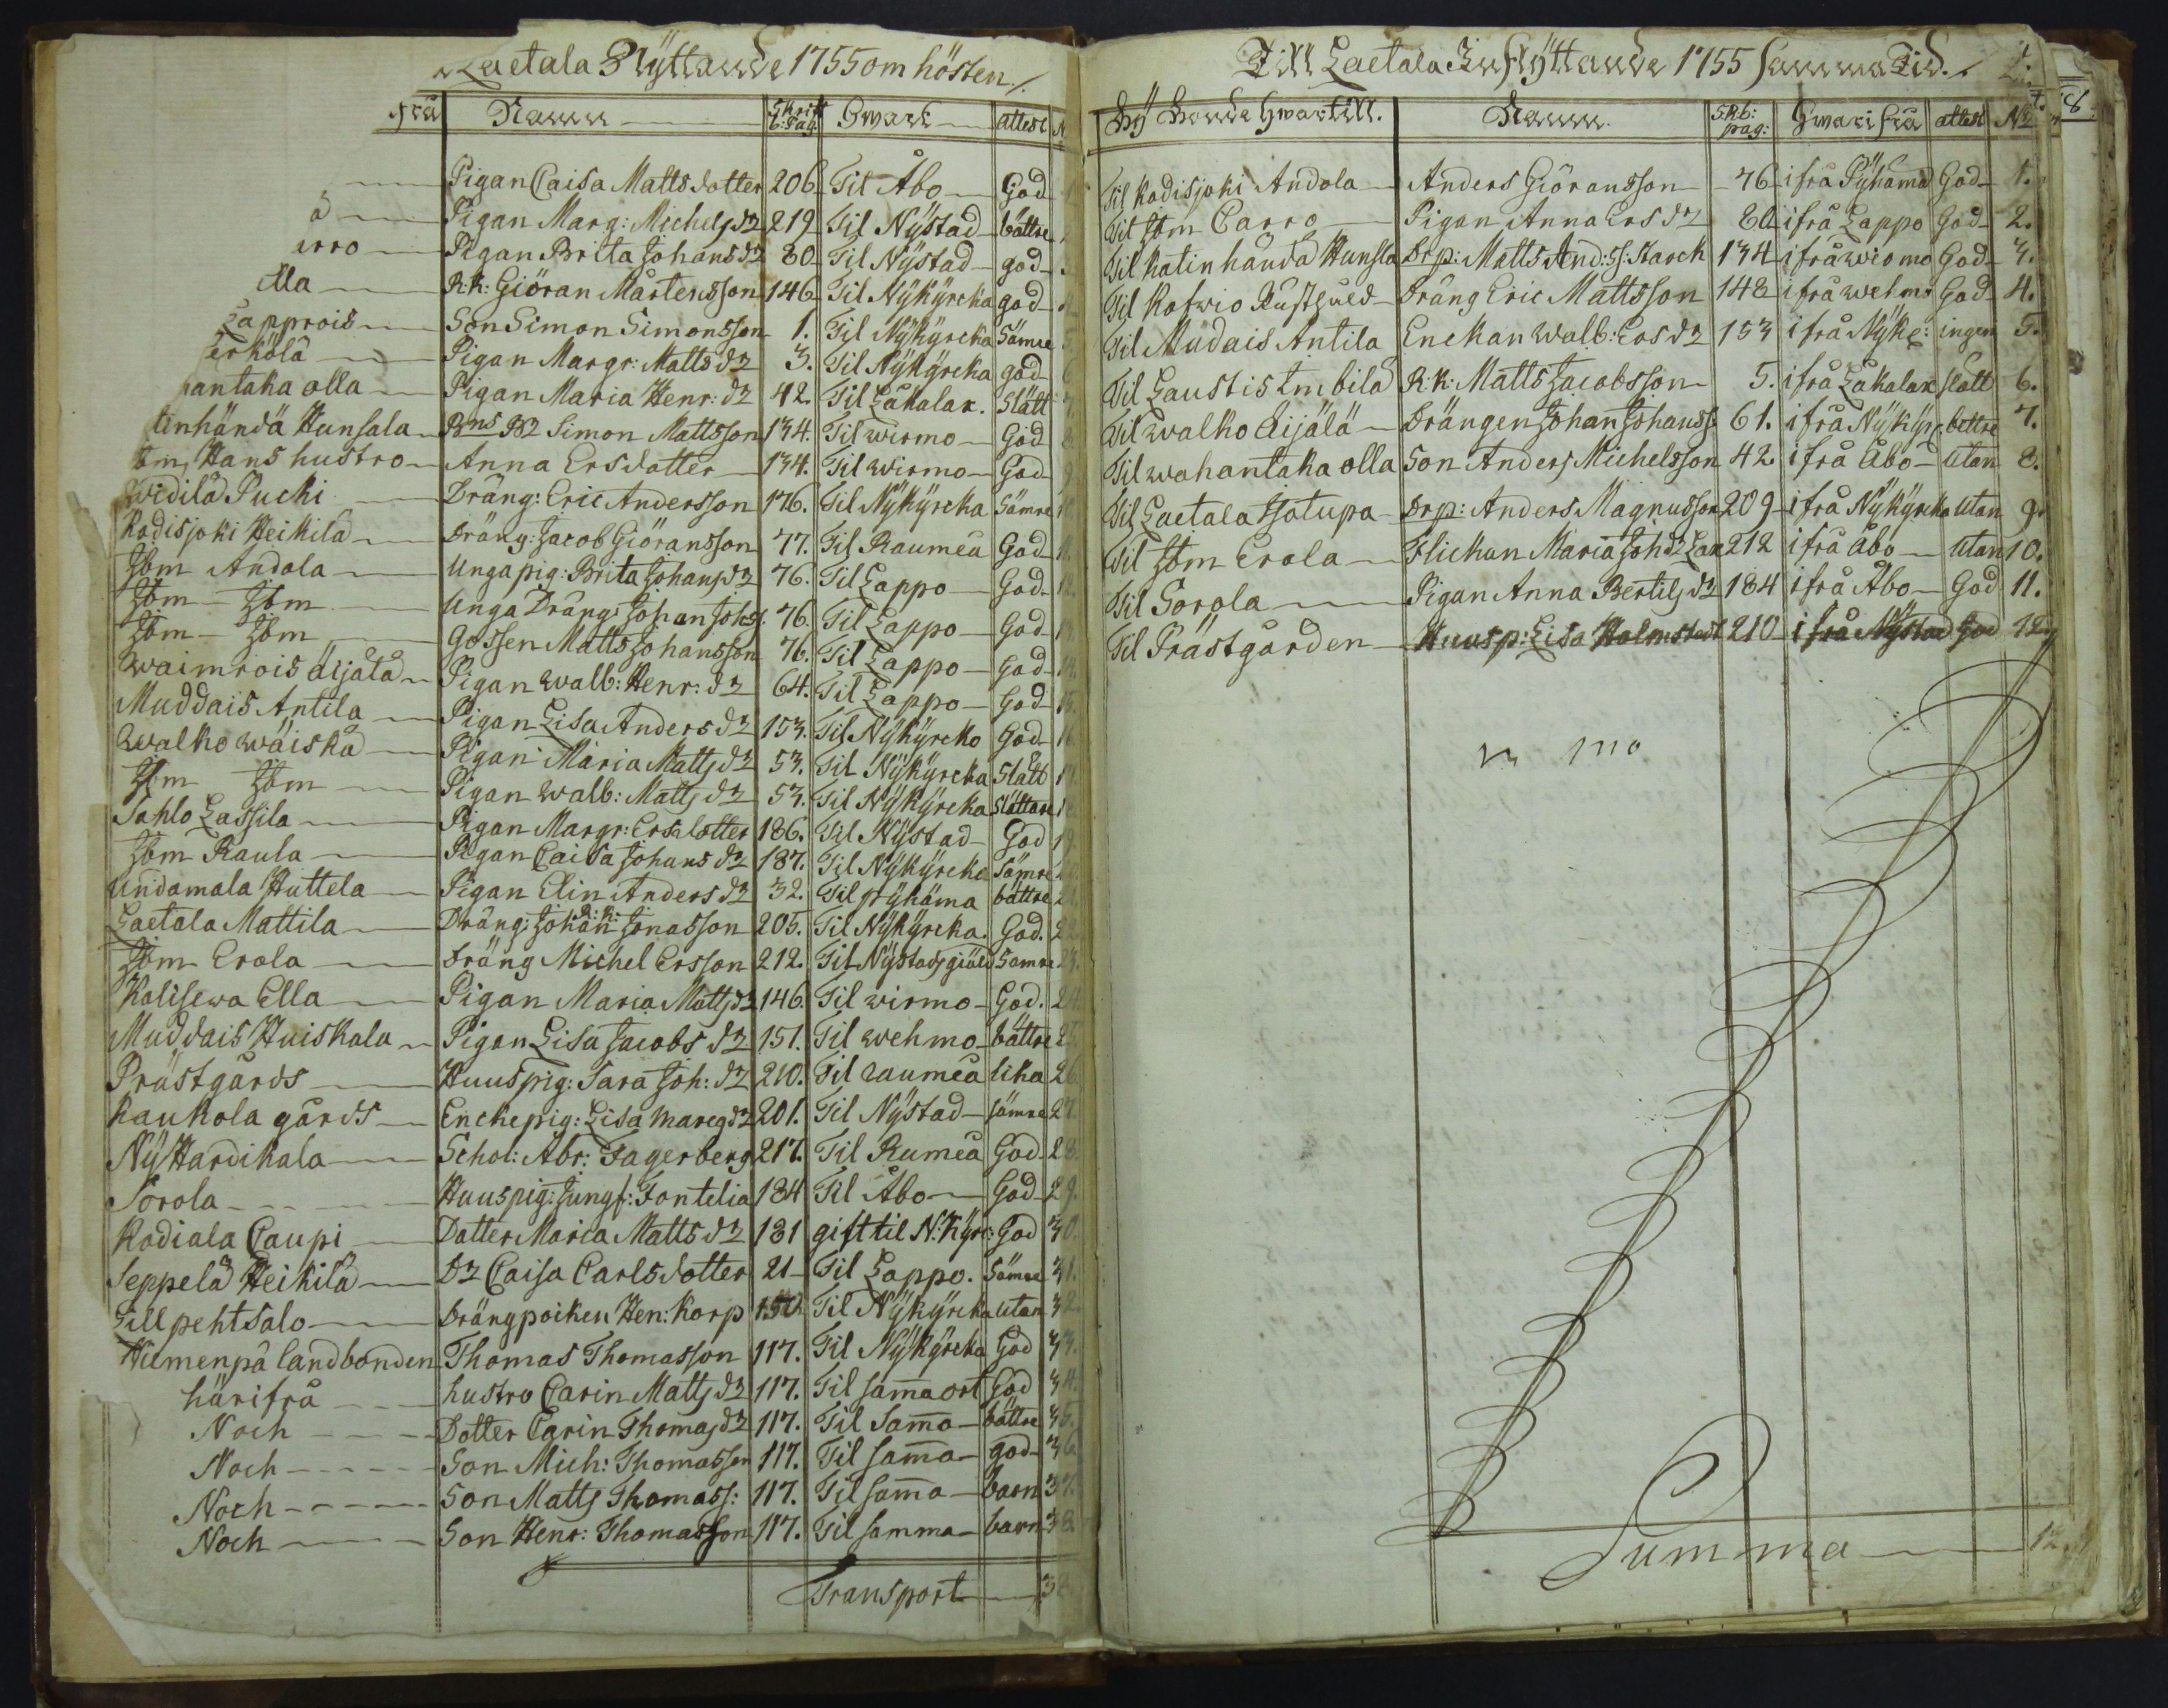 Laetala Flyttande 1755 om hösten./.
frå Namn Skrift b: Pag Hwart attest N
Pigan Caisa Mattsdotter 206 Til Åbo God 1
å Pigan Marg: Michelsdr 219 Til Nÿstad bättre
erro Pigan Brita Johansdr 80 Til Nÿstad god
Ella R:k: Giöran Mårtensson 146 Til Nÿkÿrcka god
Lapprois Son Simon Simonsson 1. Til Nÿkÿrcka Sämre 5.
erkölä Pigan Margr: Mattsdr 3. Til Nÿkÿrcka god 6
hantaka olla Pigan Maria Henr: dr 42. Til Låkalax. Slätt 7.
tinhändä Hunsala Simon Mattsson 134. Til wirmo God 8
Ibm, Hans hustro Anna Ersdotter 134. Til wirmo God 9
widilä Pucki Dräng: Eric Andersson 176. Til Nÿkÿrcka Sämre 10
Kodisjoki Heikilä Dräng: Jacob Giöransson 77. Til Raumea God 11.
Ibm Andola Unga pig: Brita Johansdr 76. Til Lappo God 12.
Ibm Ibm Unga Dräng: Johan Johss. 76. Til Lappo God 13.
Ibm Ibm Gossen Matts Johansson 76. Til Lappo God 14.
waimrois äijälä Pigan walb: Henr: dr 64. Til Lappo God 15.
Muddais Antila Pigan Lisa Andersdr 153. Til Nÿkÿrcko God 16
walko wäiskä Pigan Maria Mattsdr 53. Til Nÿkÿrcka Slätt 17.
Ibm Ibm Pigan walb: Mattsdr 53. Til Nÿkÿrcka Slättare 18.
Sahlo Lassila Pigan Margr: Ersdotter 186. Til Nÿstad God 19
Ibm Raula Pigan Caisa Johansdr 187. Til Nÿkÿrcka Sämre 20
Undamala Huttela Pigan Elin Andersdr 32. Til pÿhäma bättre 21
Laetala Mattila Dräng: Johan R:k: Jonasson 205. Til Nÿkÿrcka. God. 22
Ibm Erola Dräng Michel Ersson 212. Til Nÿstads giäld Samre 23.
Kalisewa Ella Pigan Maria Mattsdr 146. Til wirmo God. 24
Muddais Huiskala Pigan Lisa Jacobsdr 151. Til wehmo bättre 25.
Prästgårds Huuspig: Sara Joh: dr 210. Til raumea lika 26
kaukola gårds Enckepig: Lisa 201. Til Nÿstad sämre 27.
Nÿ Hardikala Schol: Abr: Fagerberg 217. Til Rumea God 28.
Sorola Huuspig: Jungf: Fontelia 184 Til Åbo God 29.
Kodiala Caupi Dotter Maria Mattsdr 181 gift til N: kÿrc: God 30
Seppelä Heikilä Dr Caisa Carlsdotter 21 Til Lappo. Sämre 31.
Sillpehtsalo Drängpoiken Hen: Korp 150 Til Nÿkÿrcka utan 32.
Niemenpä landbonden Thomas Thomasson 117. Til Nÿkÿrcka God 33.
härifrå hustro Carin Mattsdr 117. Til sam̄a ort God 34.
Noch Dotter Carin Thomasdr 117. Til Sam̄a bättre 35.
Noch Son Mich: Thomasson 117. Til sam̄a god 36
Noch Son Matts Thomass: 117. Til sam̄a barn 37.
Noch Son Henr: Thomasson 117. Til samma barn 38
Transport 38
Till Laetala Inflyttande 1755 samma Tid./.
Bÿ hwartill. Namn Skb: pag: Hwarifrå attest No
Til Kodisjoki Andola Anders Giöransson 76 ifrå Pÿhama God 1.
Til Ibm Carro Pigan Anna Ersdr 80 ifrå Lappo God 2.
Til Katinhändä Hunsla Drp: Matts And: ss: Starck 134 ifrå wirmo God 3.
Til Kofwio Dräng Eric Mattsson 148 ifrå wehmo God 4.
Til Mudais Antila Enckan walb: Ersdr 153 ifrå Nÿkc: ingen 5.
Til Laustis Imbilä R:k: Matts Jacobsson 5. ifrå Låkalax slätt 6.
Til walko äijälä Drängen Johan Johanss. 61. ifrå Nÿkÿrc. bettre 7.
Til wahantaka olla Son Anders Michelsson 42 ifrå Åbo utan 8.
Til Laetala Isotupa Drp: Anders Magnusson 209 ifrå Nÿkÿrcka utan 9.
Til Ibm Erola Flickan Maria Johdr 212 ifrå Åbo utan 10.
Til Sorola Pigan Anna Bertilsdr 184 ifrå Åbo God 11.
Til Prästgården Huusp: Lisa Holmstedt 210 ifrå Nÿstad God 12
Summa 12.